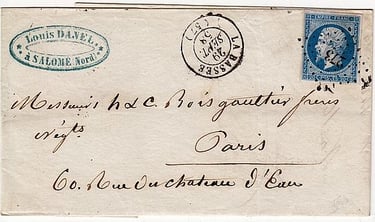 Louis DANEL
à SALOMÉ (Nord)
LA BASSÉE
29
SEPT.
54
(57)
EMPIRE FRANC
Messieurs h & C Boisgaultier frères
Négts
Paris
60. Rue du chateau d'Eau